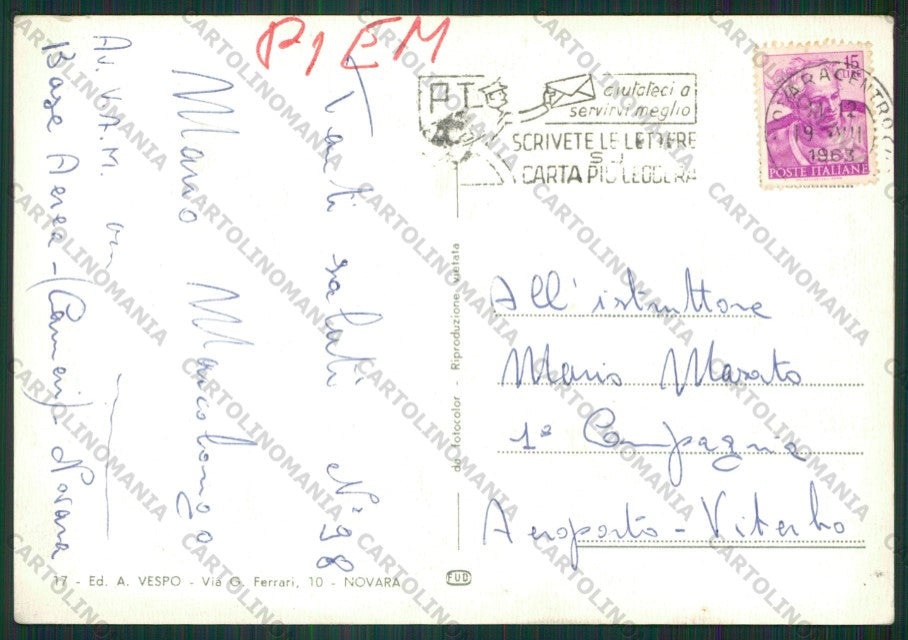 PIEM
PT
aiutateci a
servirvi meglio
SCRIVETE LE LETTERE
SU
CARTA PIÙ LEGGERA
15
LIRE
NOVARA CENTRO
12
19
1963
POSTE ITALIANE
Tanti saluti N° 98
Mario
Av. V.A.M.
Base Aerea - (Cameri) - Novara
All'istruttore
Mario Masato
1ª Compagnia
Aeroporto - Viterbo
da fotocolor - Riproduzione vietata
17 - Ed. A. VESPO - Via G. Ferrari, 10 - NOVARA
FUD
CARTOLINOMANIA